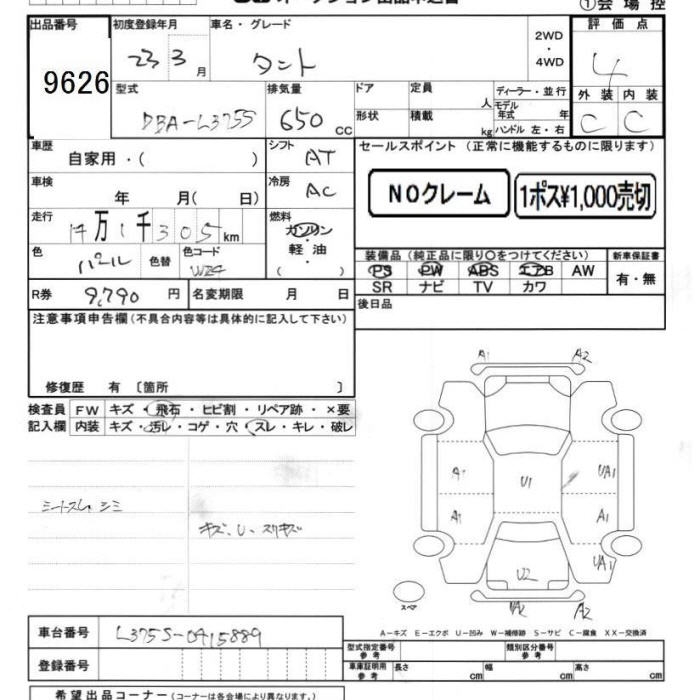 ①会場控
出品番号 初度登録年月 車名・グレード 2WD ・ 4WD 評価点
9626 23 3 月 タント 4
型式 DBA-L375S 排気量 650 cc ドア 形状 定員 人 積載 kg ディーラー・並行 モデル年式 年 ハンドル 左・右 外装 内装
C C
車歴 自家用・( ) シフト AT セールスポイント (正常に機能するものに限ります)
車検 年 月( 日) 冷房 AC NOクレーム 1ポス¥1,000売切
走行 14万1千305km 燃料 ガソリン 軽・油 ( )
色 パール 色替 色コード W24 装備品 (純正品に限り○をつけてください) 新車保証書
PS PW ABS エアB AW 有・無
SR ナビ TV カワ
R券 9,790 円 名変期限 月 日 後日品
注意事項申告欄(不具合内容等は具体的に記入して下さい)
修復歴 有 〔箇所 〕
検査員 FW キズ・飛石・ヒビ割・リペア跡・×要
記入欄 内装 キズ・汚レ・コゲ・穴・スレ・キレ・破レ
シートスレ シミ
キズ、U、スリキズ
A1 A2
A1 U1 UA1
A1 A1
UA1
U2
スペア UA2 A2
A-キズ E-エクボ U-凹み W-補修跡 S-サビ C-腐食 XX-交換済
車台番号 L375S-0415889
型式指定番号 参考 類別区分番号 参考
登録番号 車庫証明用 参考 長さ cm 幅 cm 高さ cm
希望出品コーナー (コーナーは各会場により異なります。)